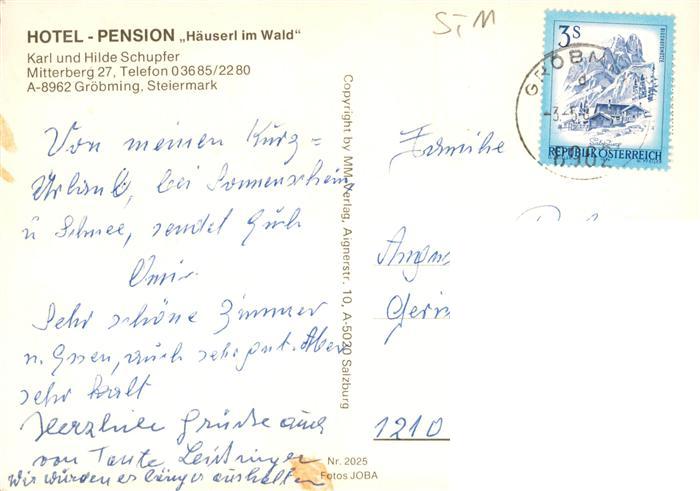 HOTEL - PENSION „Häuserl im Wald"
Karl und Hilde Schupfer
Mitterberg 27, Telefon 03685/2280
A-8962 Gröbming, Steiermark
Von meinen Kurz=
Urlaub, bei Sonnenschein
u Schnee, sendet Euch
Omi.
Sehr schöne Zimmer
u. Essen, auch sehr gut. Aber
sehr kalt
Herzliche Grüße auch
von Tante
Wir würden es länger aushalten
Copyright by MM-Verlag, Aignerstr. 10, A-5020 Salzburg
Nr. 2025
Fotos JOBA
StM
3S
BISCHOFSMÜTZE
REPUBLIK ÖSTERREICH
GRÖBM
-3.-5.
Familie
1210